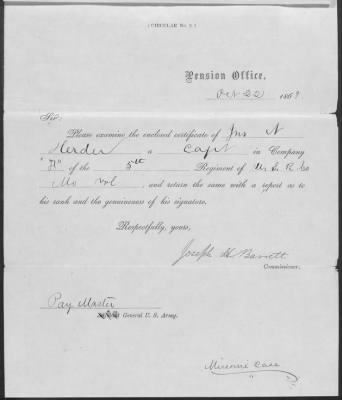 ( CIRCULAR No. 9. )
Pension Office,
Oct 22 1867
Sir:
Please examine the enclosed certificate of Jno N
Herder a Capt in Company
"H" of the 5th Regiment of U. S. R. Co
Mo vol, and return the same with a report as to
his rank and the genuineness of his signature.
Respectfully, yours,
Joseph H. Barrett
Commissioner.
Pay Master
General U. S. Army.
Missouri Case